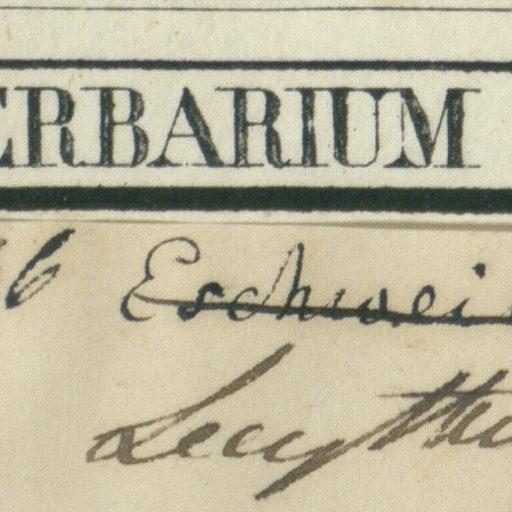 ERBARIUM
6 Eschwei
Lecythi